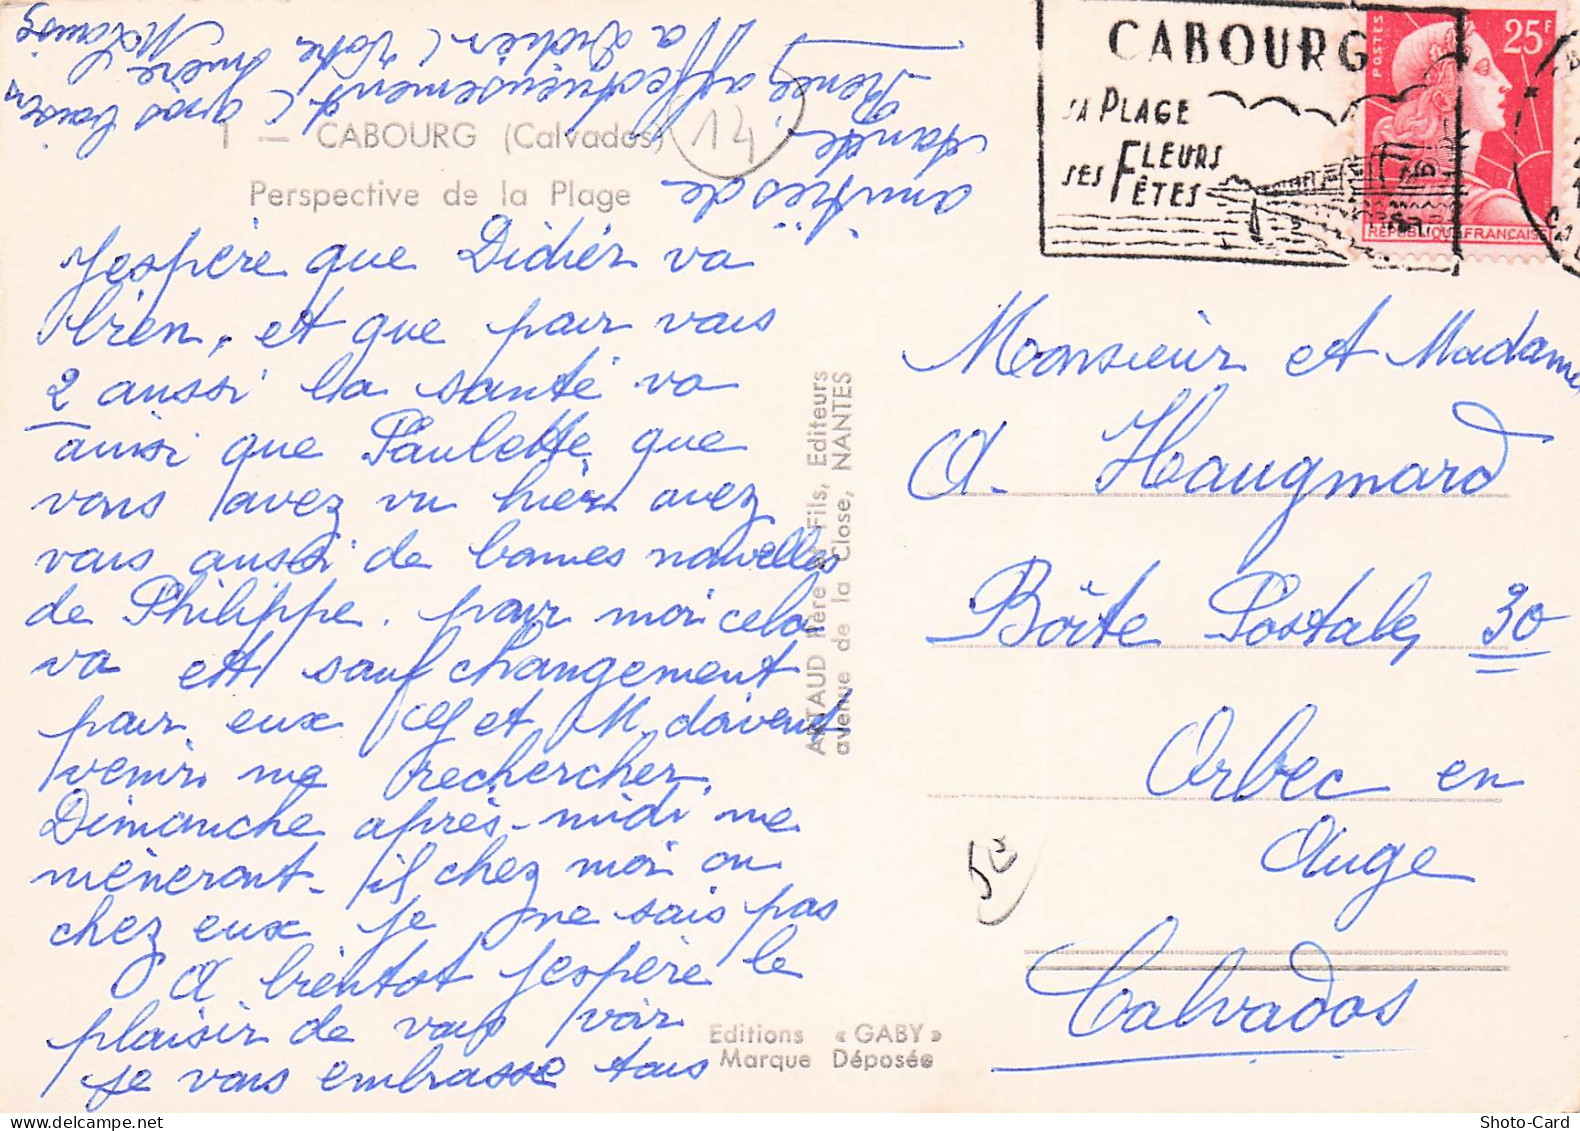 1 — CABOURG (Calvados)
14
Perspective de la Plage
J'espère que Didier va
bien, et que pour vous
2 aussi la santé va
ainsi que Paulette que
vous avez vu hier avez
vous aussi de bonnes nouvelles
de Philippe. pour moi cela
va et sauf changement
pour eux et M. doivent
venir me rechercher
Dimanche après-midi me
mèneront-il chez moi ou
chez eux je ne sais pas
A bientôt j'espère le
plaisir de vous voir
je vous embrasse tous
amitiés de
Renée affectueusement et
gros baisers
a Didier (votre mère Louise
ARTAUD Père & Fils, Editeurs
avenue de la Close, NANTES
Editions « GABY »
Marque Déposée
CABOURG
SA PLAGE
SES FLEURS
FÊTES
POSTES
25F
REPUBLIQUE FRANCAISE
Monsieur et Madame
A. Haugmard
Boîte Postale, 30
Orbec en
Auge
Calvados
Shoto-Card